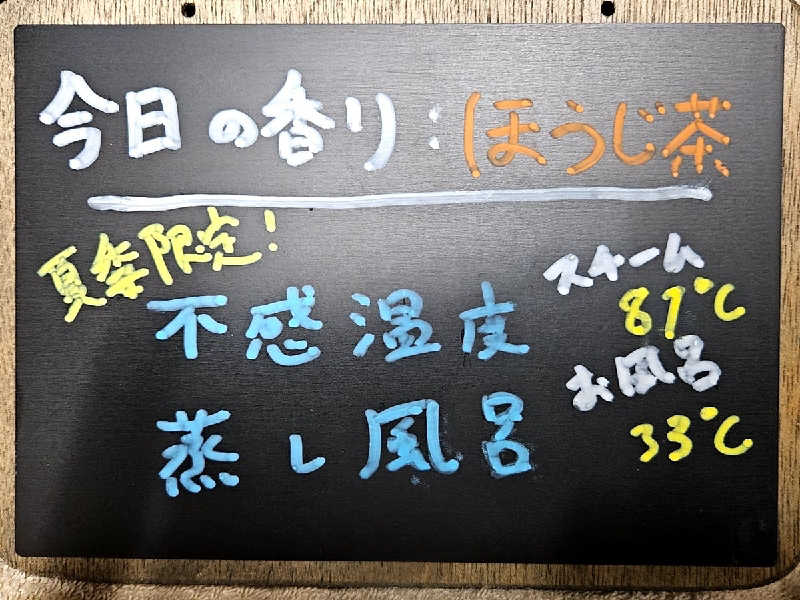 今日の香り:ほうじ茶
夏季限定!
不感温度
蒸し風呂
スチーム
87℃
お風呂
33℃